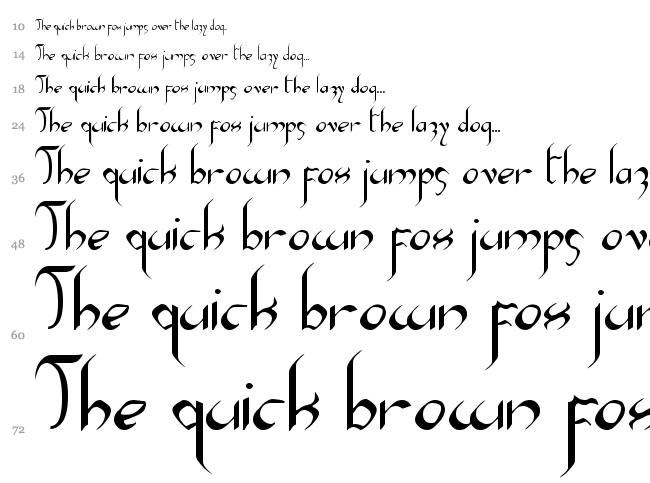 10 The quick brown fox jumps over the lazy dog.
14 The quick brown fox jumps over the lazy dog...
18 The quick brown fox jumps over the lazy dog...
24 The quick brown fox jumps over the lazy dog...
36 The quick brown fox jumps over the laz
48 The quick brown fox jumps ov
60 The quick brown fox jum
72 The quick brown fox